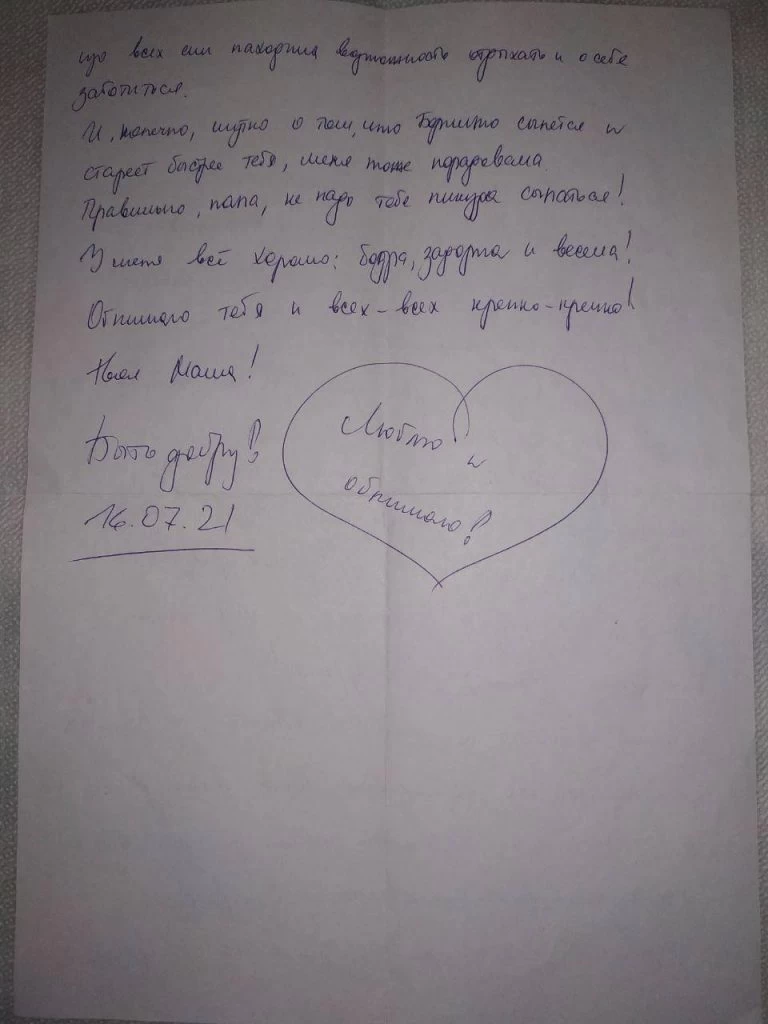 изо всех сил находила возможность отдыхать и о себе
заботиться.
И, конечно, шутка о том, что сыпется и
стареет быстрее тебя, меня тоже порадовала.
Правильно, папа, не надо тебе никуда сыпаться!
У меня всё хорошо: бодра, задорна и весела!
Обнимаю тебя и всех-всех крепко-крепко!
Маша!
Быть добру!
16.07.21
Люблю и
обнимаю!